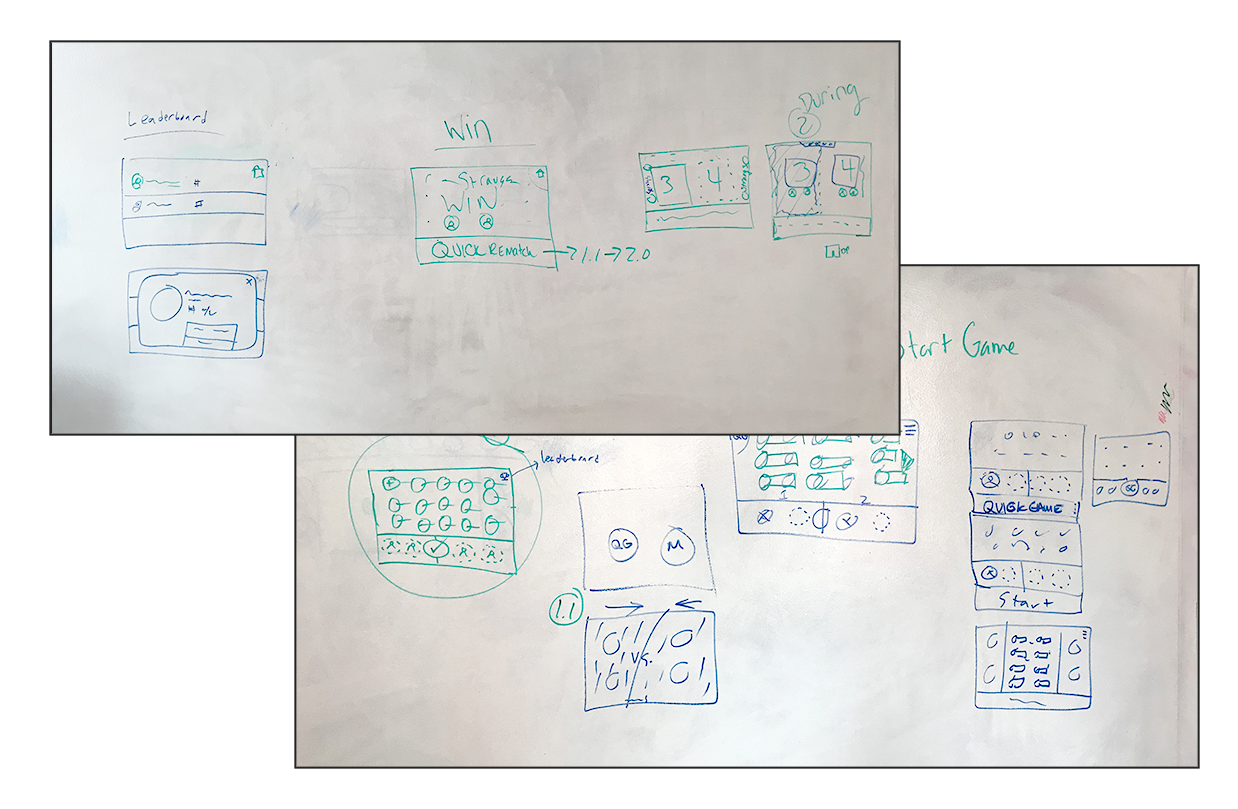 Leaderboard
#
#
Win
WIN
QUICK REMatch → 1.1 → 2.0
During
2
3
4
3
4
tart Game
leaderboard
QG
M
1.1
VS.
1
2
QUICK GAME
QG
Start